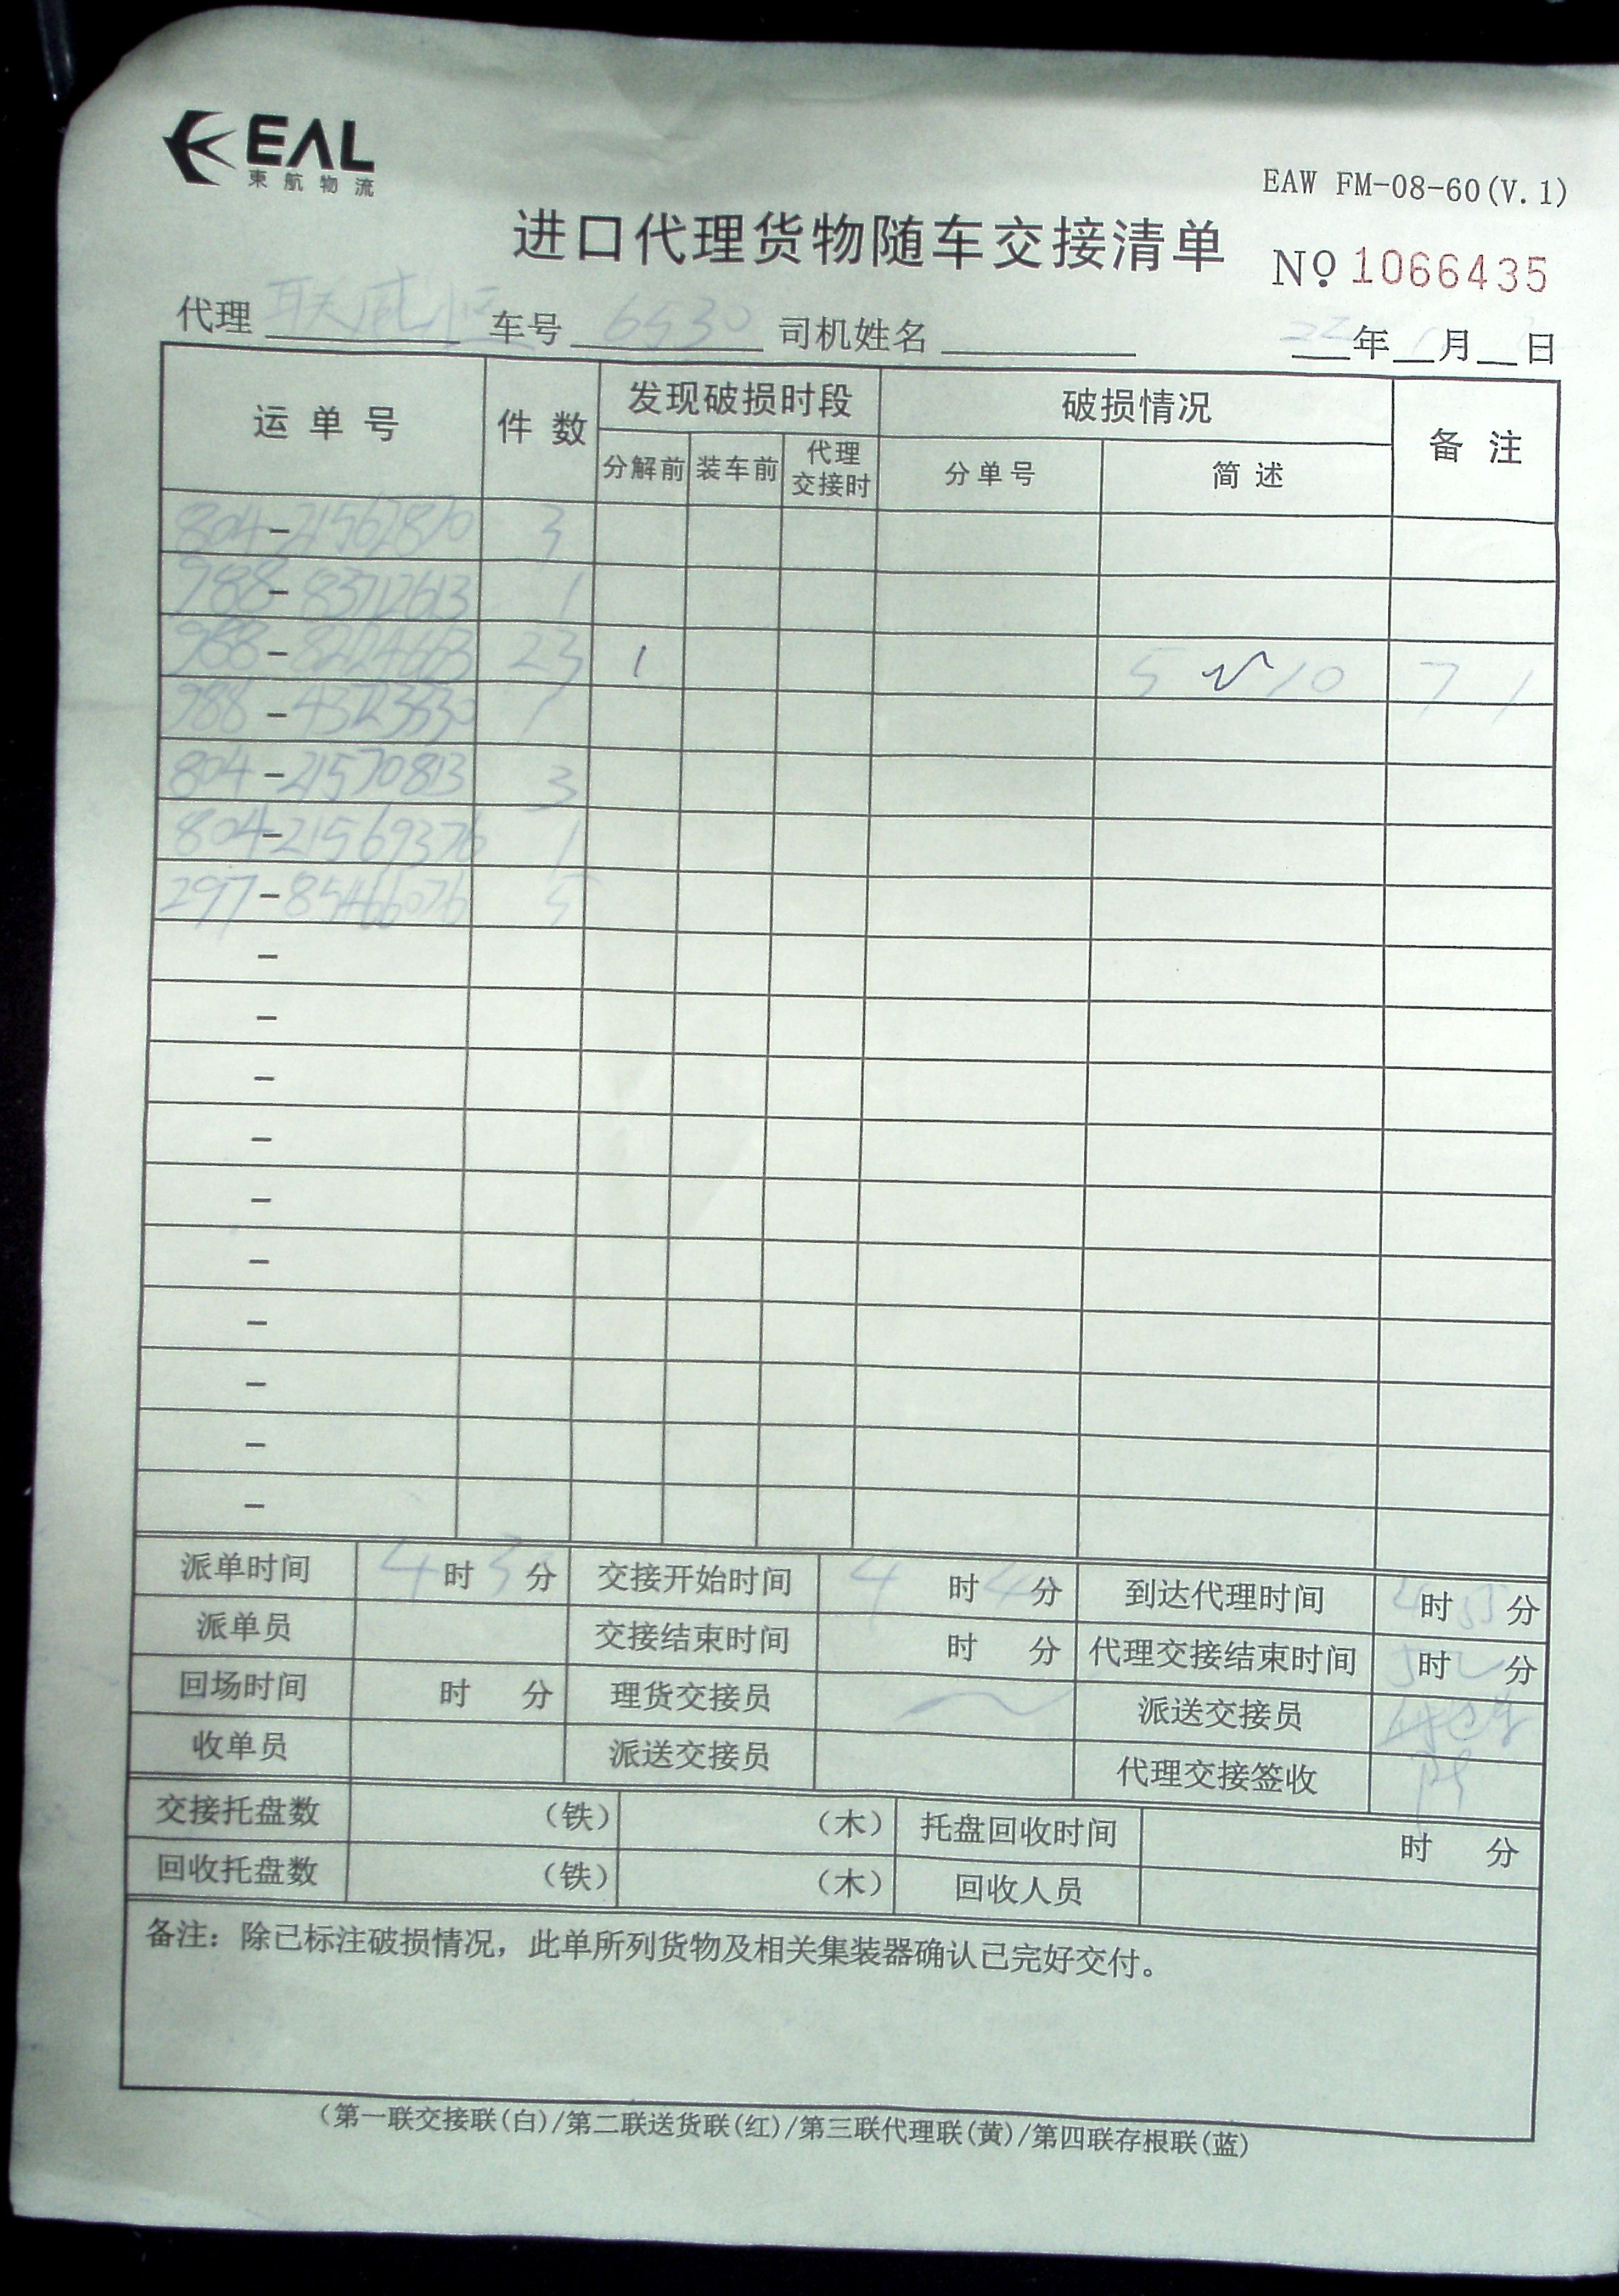 EAL
東航物流
EAW FM-08-60(V.1)
进口代理货物随车交接清单
№ 1066435
代理 联威恒 车号 6530 司机姓名 年 月 日
运单号 件数 发现破损时段 破损情况 备注
分解前 装车前 代理交接时 分单号 简述
804-21562810 3
988-83712613 1
988-82224663 23 1 5 10 7 1
988-43723330 1
804-21570813 3
804-21569376 1
297-85466076 5
-
-
-
-
-
-
-
-
-
-
派单时间 4时3 分 交接开始时间 4 时4 分 到达代理时间 时 分
派单员 交接结束时间 时 分 代理交接结束时间 时 分
回场时间 时 分 理货交接员 派送交接员
收单员 派送交接员 代理交接签收
交接托盘数 (铁) (木) 托盘回收时间 时 分
回收托盘数 (铁) (木) 回收人员
备注：除已标注破损情况，此单所列货物及相关集装器确认已完好交付。
(第一联交接联(白)/第二联送货联(红)/第三联代理联(黄)/第四联存根联(蓝)